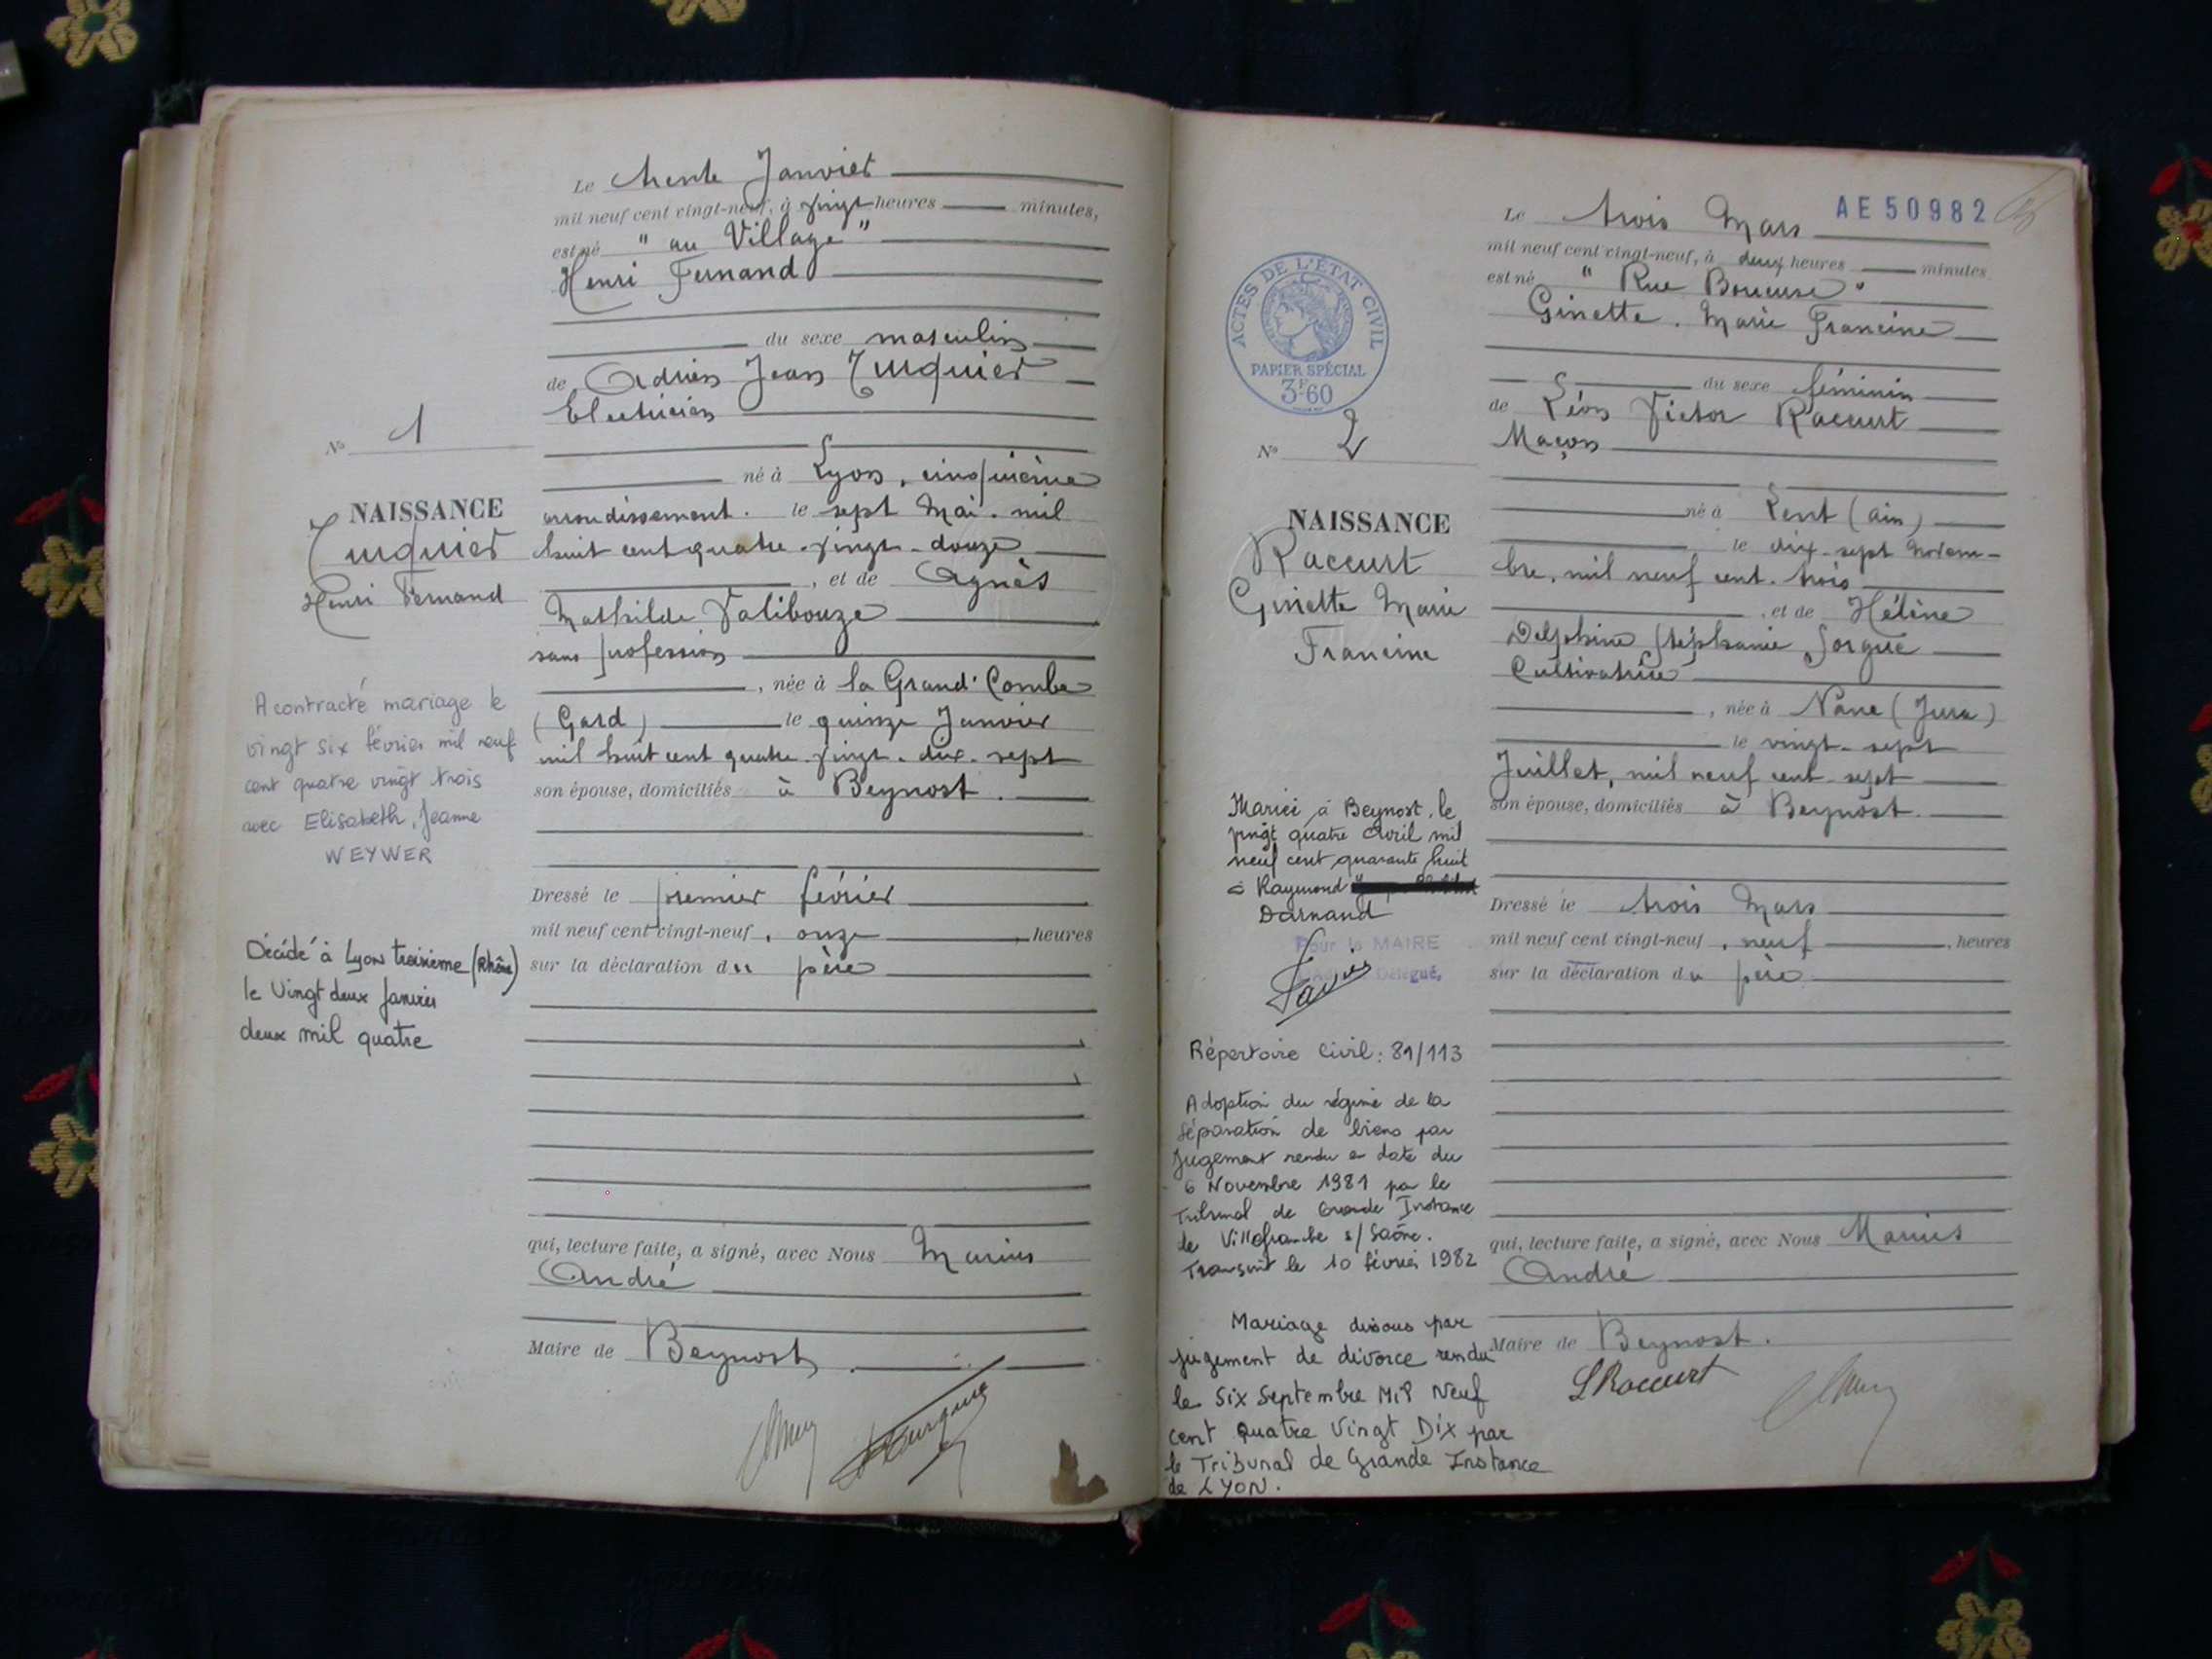 Le trente Janvier
mil neuf cent vingt-neuf, à vingt heures minutes,
est né " au Village "
Henri Fernand
du sexe masculin
de Adrien Jean Turquier
Electricien
N° 1
né à Lyon, cinquième
arrondissement. le sept Mai. mil
huit cent quatre-vingt-douze
, et de Agnès
Mathilde Valibouze
sans profession
, née à la Grand'Combe
(Gard) le quinze Janvier
mil huit cent quatre-vingt-dix-sept
son épouse, domiciliés à Beynost.
NAISSANCE
Turquier
Henri Fernand
A contracté mariage le
vingt six février mil neuf
cent quatre vingt trois
avec Elisabeth, Jeanne
WEYWER
Décédé à Lyon troisième (Rhône)
le Vingt deux Janvier
deux mil quatre
Dressé le premier février
mil neuf cent vingt-neuf, onze , heures
sur la déclaration du père
qui, lecture faite, a signé, avec Nous Marius
André
Maire de Beynost.
AE 50982
Le trois Mars
mil neuf cent vingt-neuf, à deux heures minutes
est né " Rue Boueuse "
Ginette. Marie Francine
du sexe féminin
de Léon Victor Raccurt
Maçon
né à Lent (ain)
le dix-sept novem-
bre, mil neuf cent. trois
, et de Hélène
Delphine Stéphanie Sorgue
Cultivatrice
, née à Nance (Jura)
le vingt-sept
Juillet, mil neuf cent-sept
son épouse, domiciliés à Beynost.
ACTES DE L'ÉTAT CIVIL
PAPIER SPÉCIAL
3F60
N° 2
NAISSANCE
Raccurt
Ginette Marie
Francine
Mariée à Beynost, le
vingt quatre Avril mil
neuf cent quarante huit
à Raymond
Darnand
Pour le MAIRE
Délégué,
Répertoire Civil : 81/113
Adoption du régime de la
séparation de biens par
jugement rendu en date du
6 Novembre 1981 par le
Tribunal de Grande Instance
de Villefranche s/ Saône.
Transcrit le 10 février 1982
Mariage dissous par
jugement de divorce rendu
le Six Septembre Mil Neuf
cent Quatre Vingt Dix par
le Tribunal de Grande Instance
de LYON.
Dressé le trois Mars
mil neuf cent vingt-neuf, neuf , heures
sur la déclaration du père
qui, lecture faite, a signé, avec Nous Marius
André
Maire de Beynost.
L Raccurt